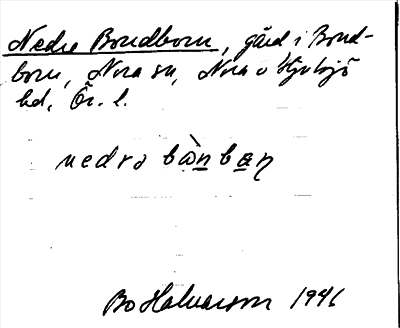 Nedre Bondborn, gård i Bond-
born, Nora sn, Nora o Hjulsjö
hd, Ör. l.
nedrə bòn̲ba̲ɳ
Bo Halvarson 1946